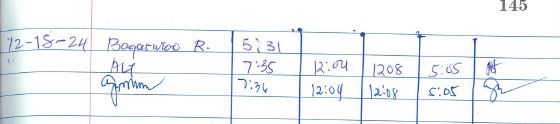 145
12-18-24 R. 5:31
7:35 12:04 1208 5:05
7:36 12:04 12:08 5:05